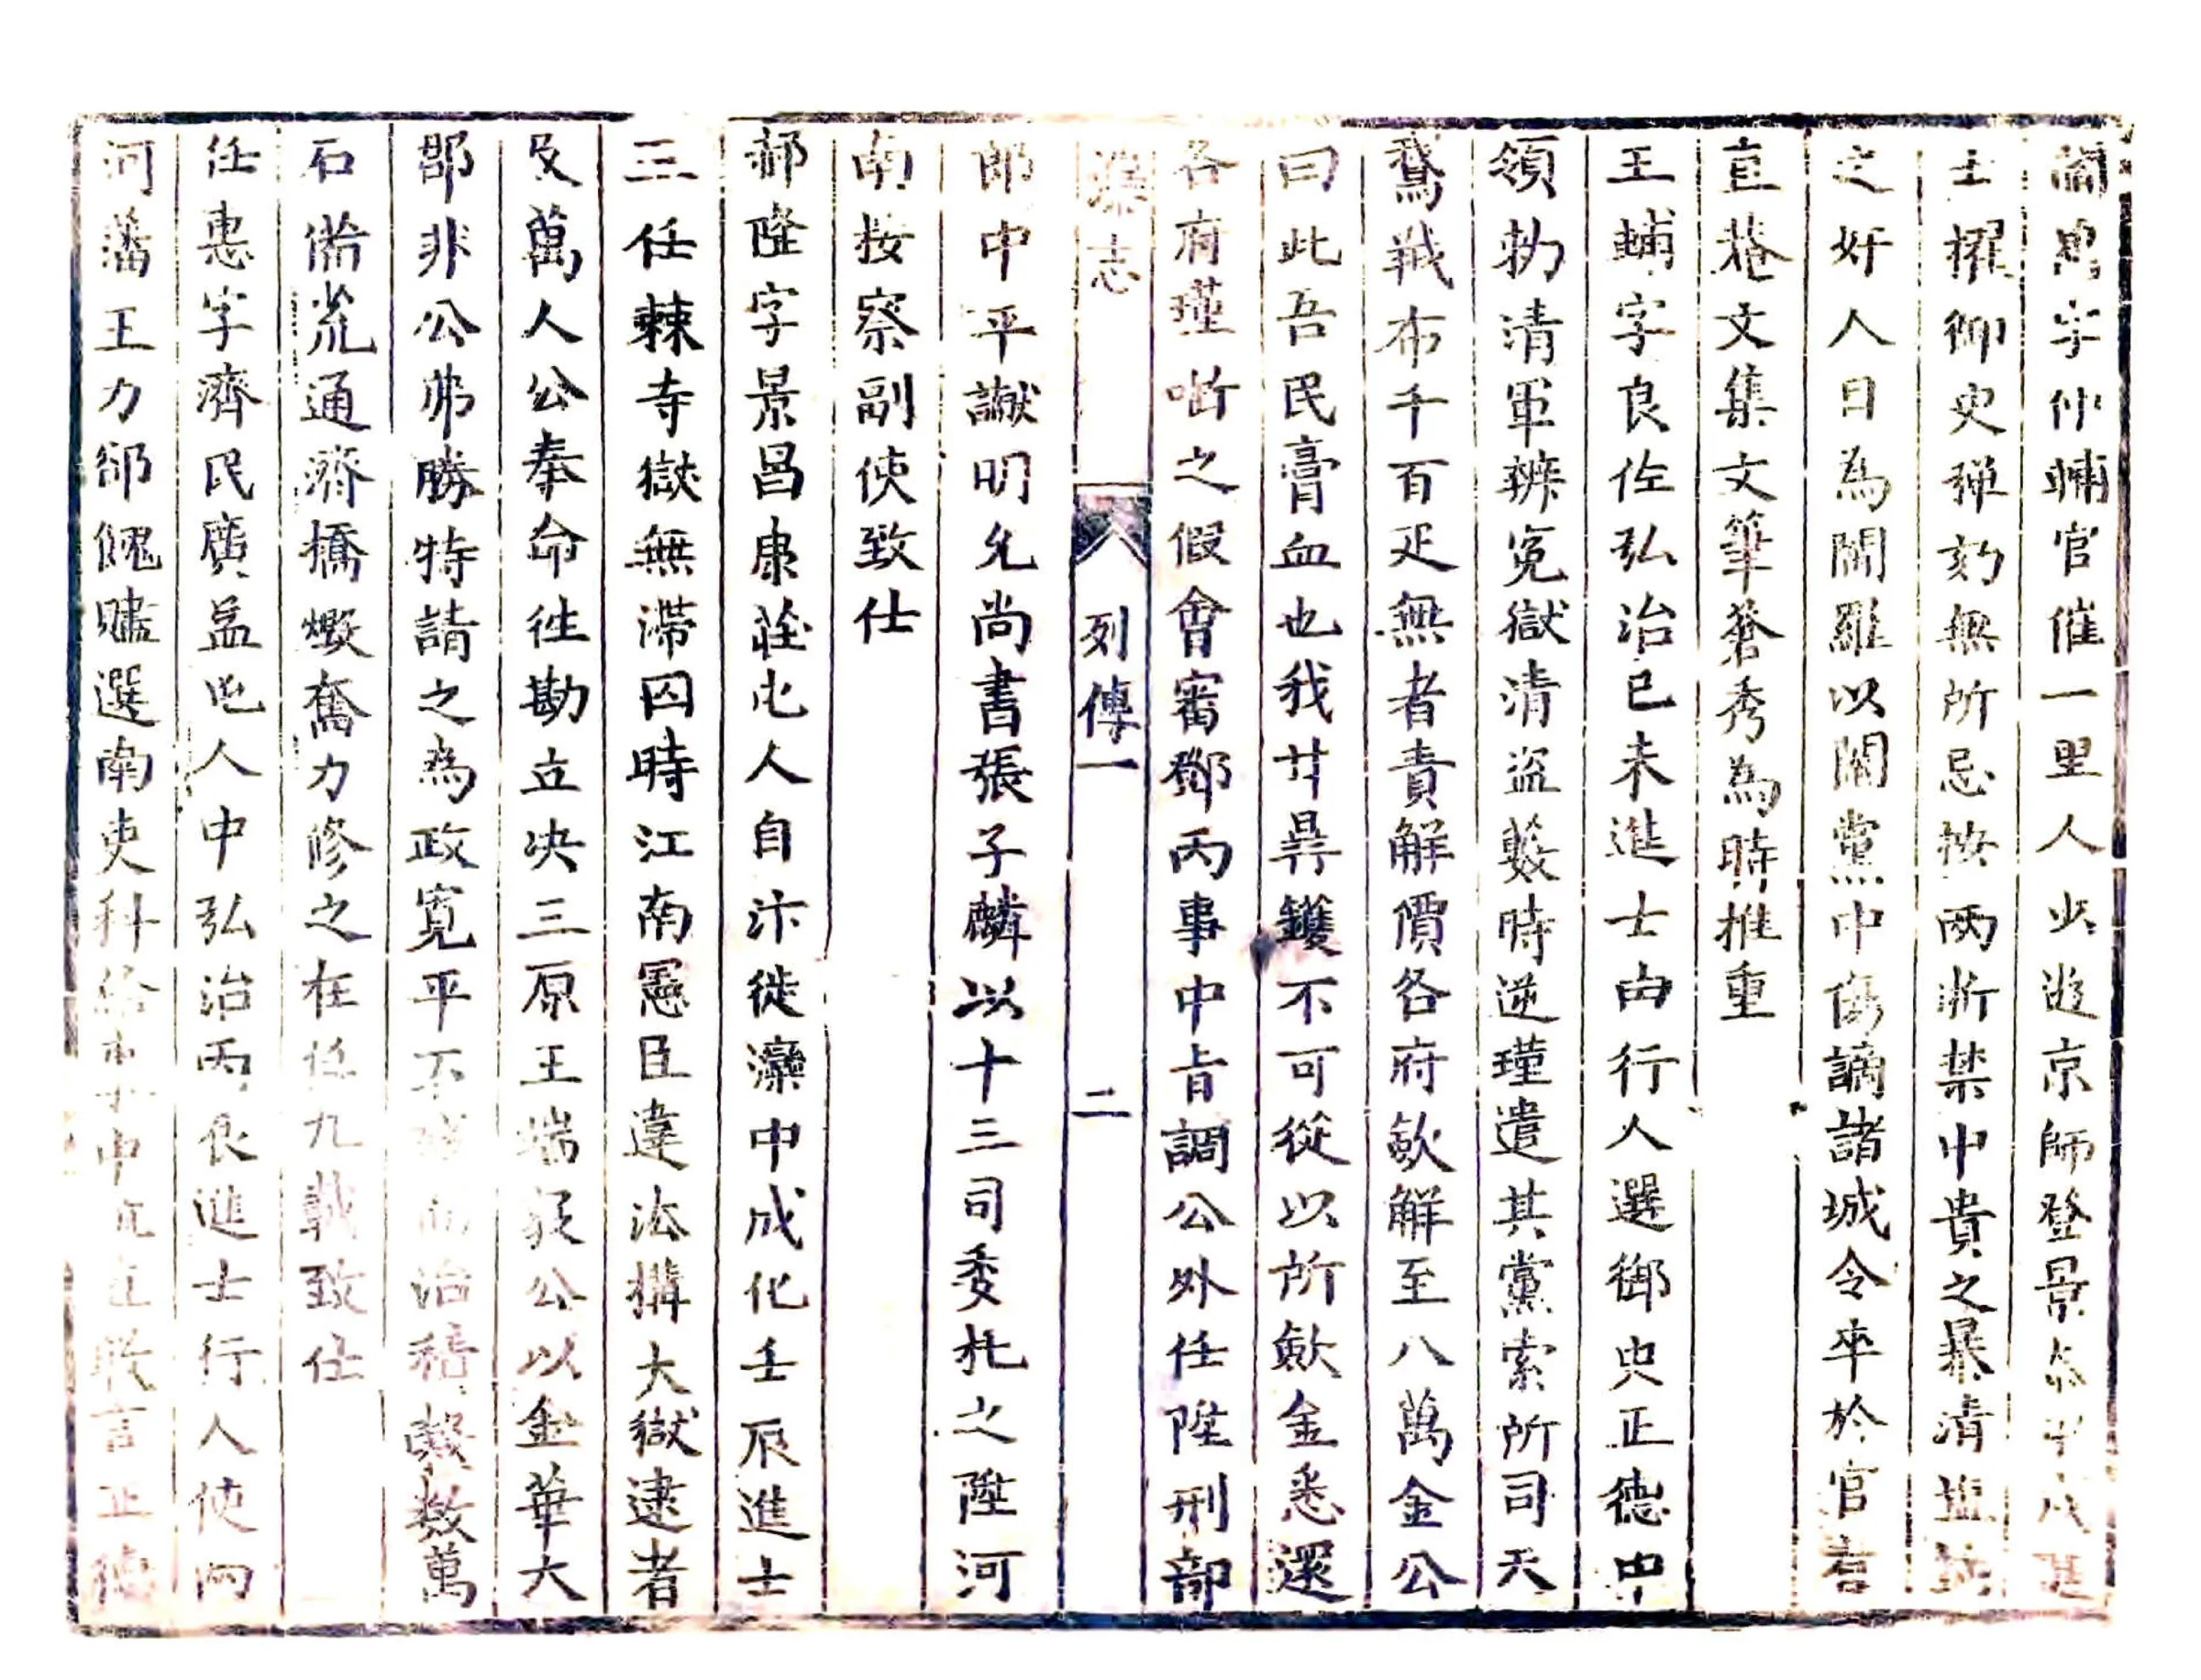 閻禹字仲輔官催一里人少遊京師登景泰甲戌進
士擢御史彈劾無所忌按兩浙禁中貴之暴清塩
之奸人日為閻羅以閹黨中傷謫諸城令卒於官著
直菴文集文筆蒼秀為時推重
王輔字良佐弘治已未進士由行人選御史正德中
領勑清軍辨寃獄清盜藪時逆瑾遣其黨索所司天
鵞絨布千百疋無者責解價各府歛解至八萬金公
曰此吾民膏血也我甘鼎鑊不可從以所歛金悉還
各府瑾啣之假會審鄧丙事中旨調公外任陞刑部
灤志
列傳一
二
郎中平讞明允尚書張子麟以十三司委托之陞河
南按察副使致仕
郝隆字景昌康莊屯人自汴徙灤中成化壬辰進士
三任棘寺獄無滯囚時江南憲臣違法搆大獄逮者
及萬人公奉命往勘立决三原王端毅公以金華大
郡非公弗勝特請之為政寛平不 而治 穀数萬
石備荒通濟橋燬奮力修之在任九載致仕
任惠字濟民廣益屯人中弘治丙辰進士行人使两
河藩王力郤餽贐選南吏科給事中 直敢言正德